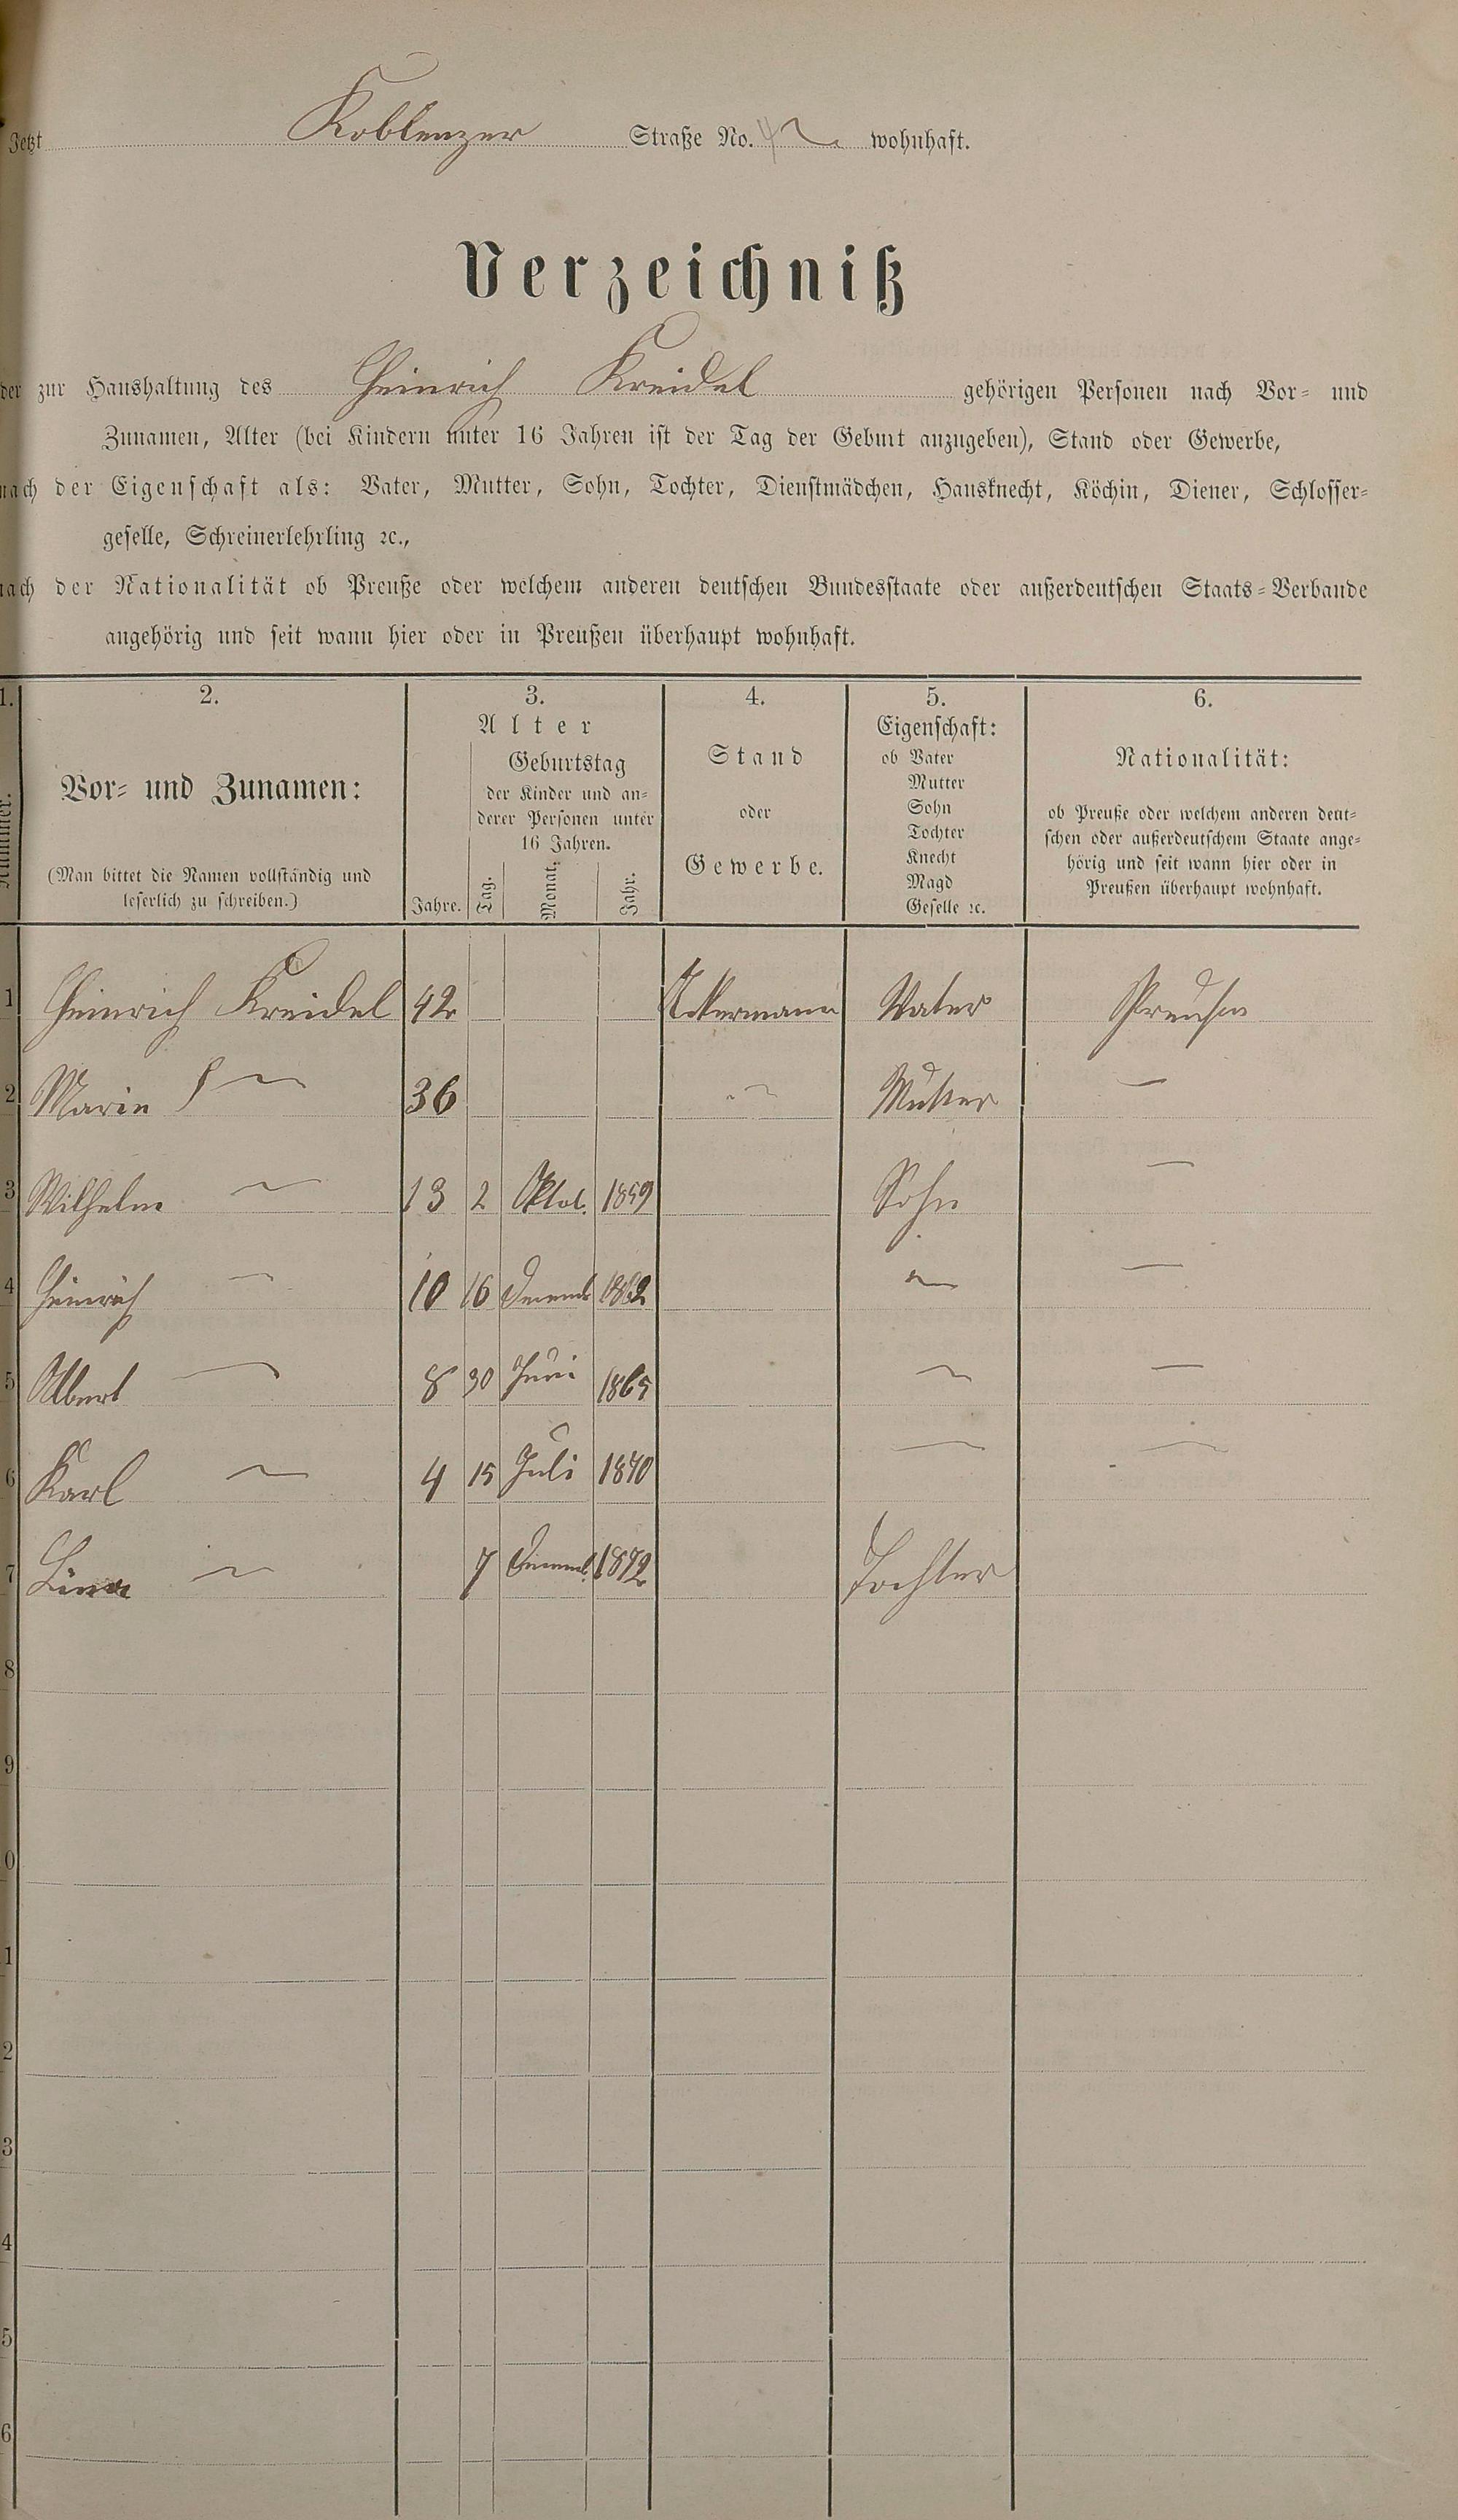 Jetzt Koblenzer Straße No. 42 wohnhaft.
Verzeichniß
der zur Haushaltung des Heinrich Kreidel gehörigen Personen nach Vor- und
Zunamen, Alter (bei Kindern unter 16 Jahren ist der Tag der Geburt anzugeben), Stand oder Gewerbe,
nach der Eigenschaft als: Vater, Mutter, Sohn, Tochter, Dienstmädchen, Hausknecht, Köchin, Diener, Schlosser-
geselle, Schreinerlehrling ꝛc.,
nach der Nationalität ob Preuße oder welchem anderen deutschen Bundesstaate oder außerdeutschen Staats-Verbande
angehörig und seit wann hier oder in Preußen überhaupt wohnhaft.
1. 2. 3. 4. 5. 6.
Nummer.
Vor- und Zunamen:
(Man bittet die Namen vollständig und
leserlich zu schreiben.)
Alter
Geburtstag
der Kinder und an-
derer Personen unter
16 Jahren.
Jahre. Tag. Monat. Jahr.
Stand
oder
Gewerbe.
Eigenschaft:
ob Vater
Mutter
Sohn
Tochter
Knecht
Magd
Geselle ꝛc.
Nationalität:
ob Preuße oder welchem anderen deut-
schen oder außerdeutschem Staate ange-
hörig und seit wann hier oder in
Preußen überhaupt wohnhaft.
1 Heinrich Kreidel 42 Ackermann Vater Preußen
2 Marie 36 Mutter —
3 Wilhelm 13 2 Oktob. 1859 Sohn —
4 Heinrich 10 16 1862 —
5 Albert 8 30 Juni 1865 —
6 Karl 4 15 Juli 1870 —
7 Lina 7 1872 Tochter
8
9
0
1
2
3
4
5
6